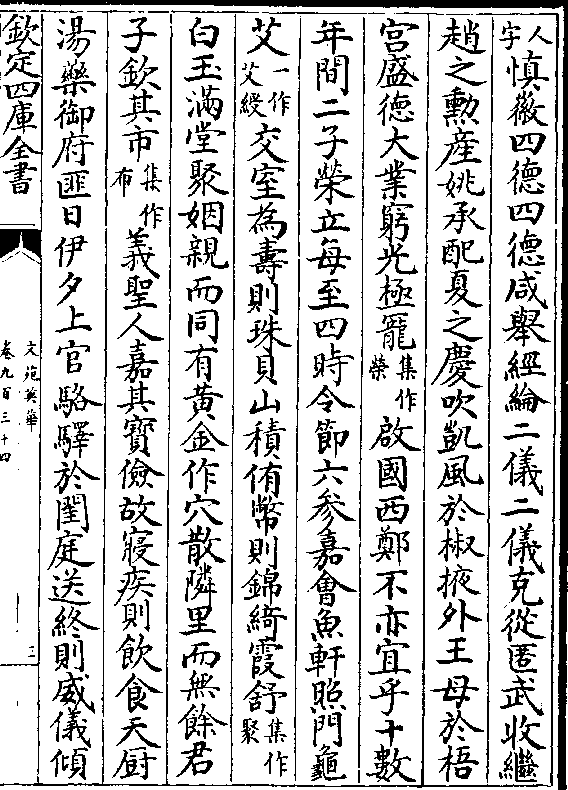 人字慎徽四德四德咸舉經綸二儀二儀克從匿武收繼
趙之勲産姚承配夏之慶吹凱風於椒掖外王母於梧
宫盛德大業窮光極寵集作榮啟國西鄭不亦宜乎十數
年間二子榮立每至四時令節六參嘉會魚軒照門龜
艾一作艾綬交室為壽則珠貝山積侑幣則錦綺霞舒集作聚
白玉滿堂聚姻親而同有黄金作穴散隣里而無餘君
子欽其市集作布義聖人嘉其寶儉故寢疾則飲食天厨
湯藥御府匪日伊夕上官駱驛於閨庭送終則威儀傾
欽定四庫全書
文苑英華
卷九百三十四
三